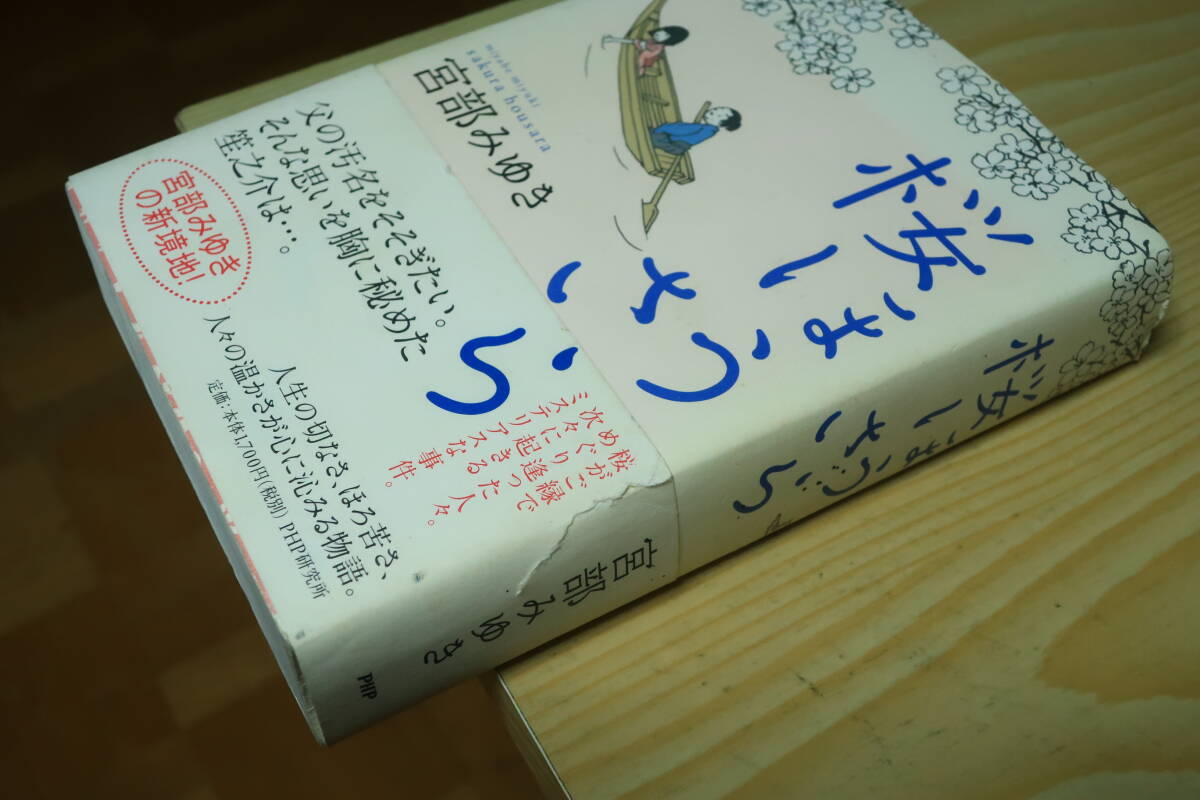 桜ほうさら
宮部みゆき
miyabe miyuki
sakura housara
父の汚名をそそぎたい。
そんな思いを胸に秘めた
笙之介は…。
宮部みゆき
の新境地!
人生の切なさ、ほろ苦さ、
人々の温かさが心に沁みる物語。
定価:本体1,700円(税別) PHP研究所
桜ほうさら
桜がご縁で
めぐり逢った人々。
次々に起きる
ミステリアスな事件。
宮部みゆき
PHP